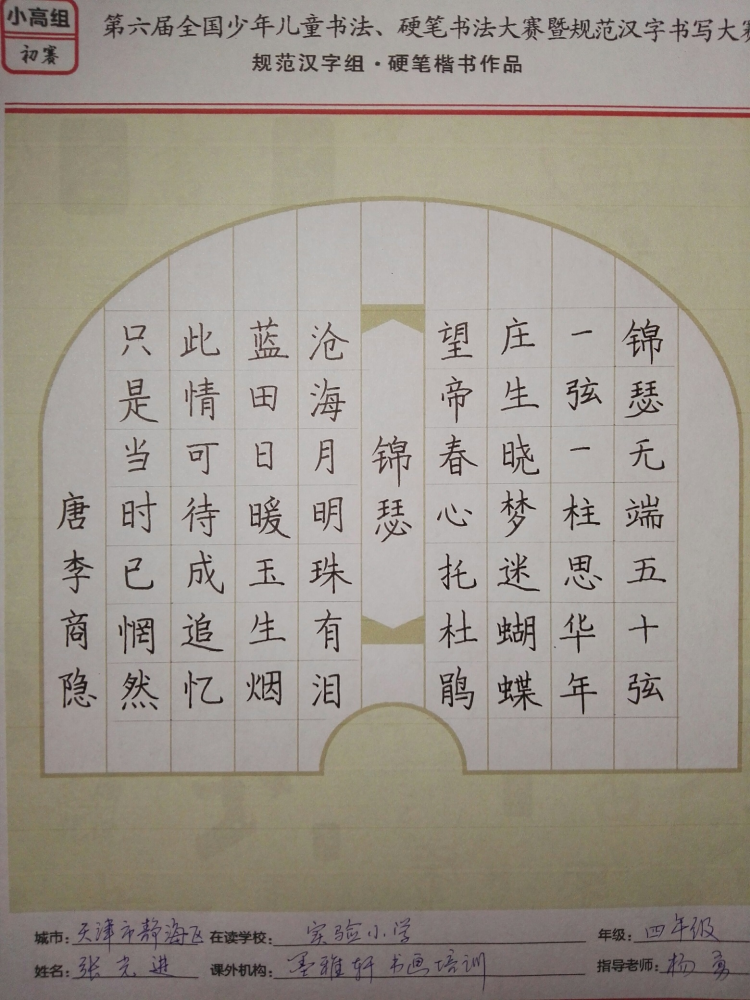 小高组
初赛
第六届全国少年儿童书法、硬笔书法大赛暨规范汉字书写大赛
规范汉字组·硬笔楷书作品
锦瑟无端五十弦
一弦一柱思华年
庄生晓梦迷蝴蝶
望帝春心托杜鹃
锦瑟
沧海月明珠有泪
蓝田日暖玉生烟
此情可待成追忆
只是当时已惘然
唐李商隐
城市:天津市静海区 在读学校:实验小学 年级:四年级
姓名:张光进 课外机构:墨雅轩书画培训 指导老师:杨勇